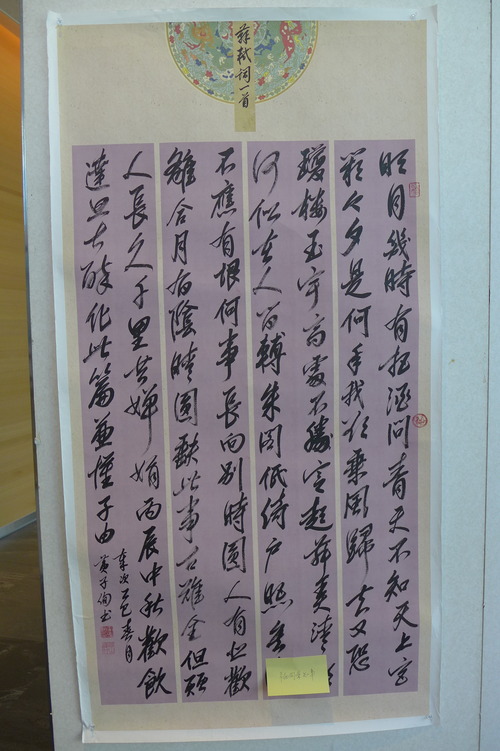 蘇軾词一首
明月幾時有把酒问青天不知天上宫
闕今夕是何年我欲乘風歸去又恐
瓊楼玉宇高處不勝寒起舞弄清
何似在人间轉朱阁低绮户照
不應有恨何事長向别時圓人有悲歡
離合月有陰晴圓缺此事古難全但願
人長久千里共嬋娟丙辰中秋歡飲
達旦大醉作此篇兼懷子由
歲次乙巳春月
黄子书